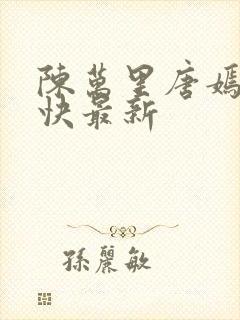 陳萬里唐嫣
快最新
孫麗敏